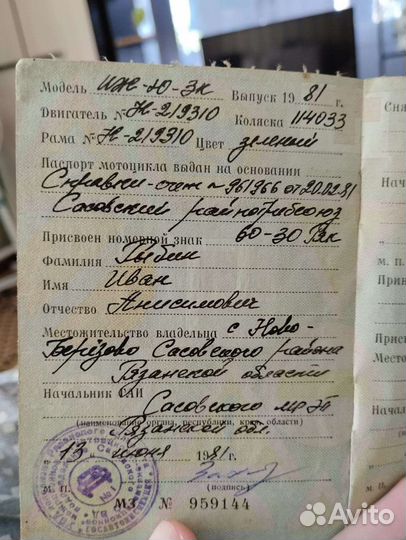 Модель ИЖ-Ю-3К Выпуск 1981 г.
Двигатель № Н-219310 Коляска 114033
Рама № Н-219310 Цвет зеленый
Паспорт мотоцикла выдан на основании
Справки-счет № 961966 от 20.02.81
Сасовский райпотребсоюз
Присвоен номерной знак 60-30
Фамилия Рыбин
Имя Иван
Отчество Анисимович
Местожительство владельца с Ново-
Берёзово Сасовского района
Рязанской области
Начальник ГАИ
Сасовского
(наименование органа, республики, края, области)
Рязанской обл.
13 июня 1981 г.
М. П. (подпись)
МЗ № 959144
Сня
Начал
М. П.
Прин
Присв
Начал
М. П.
Avito